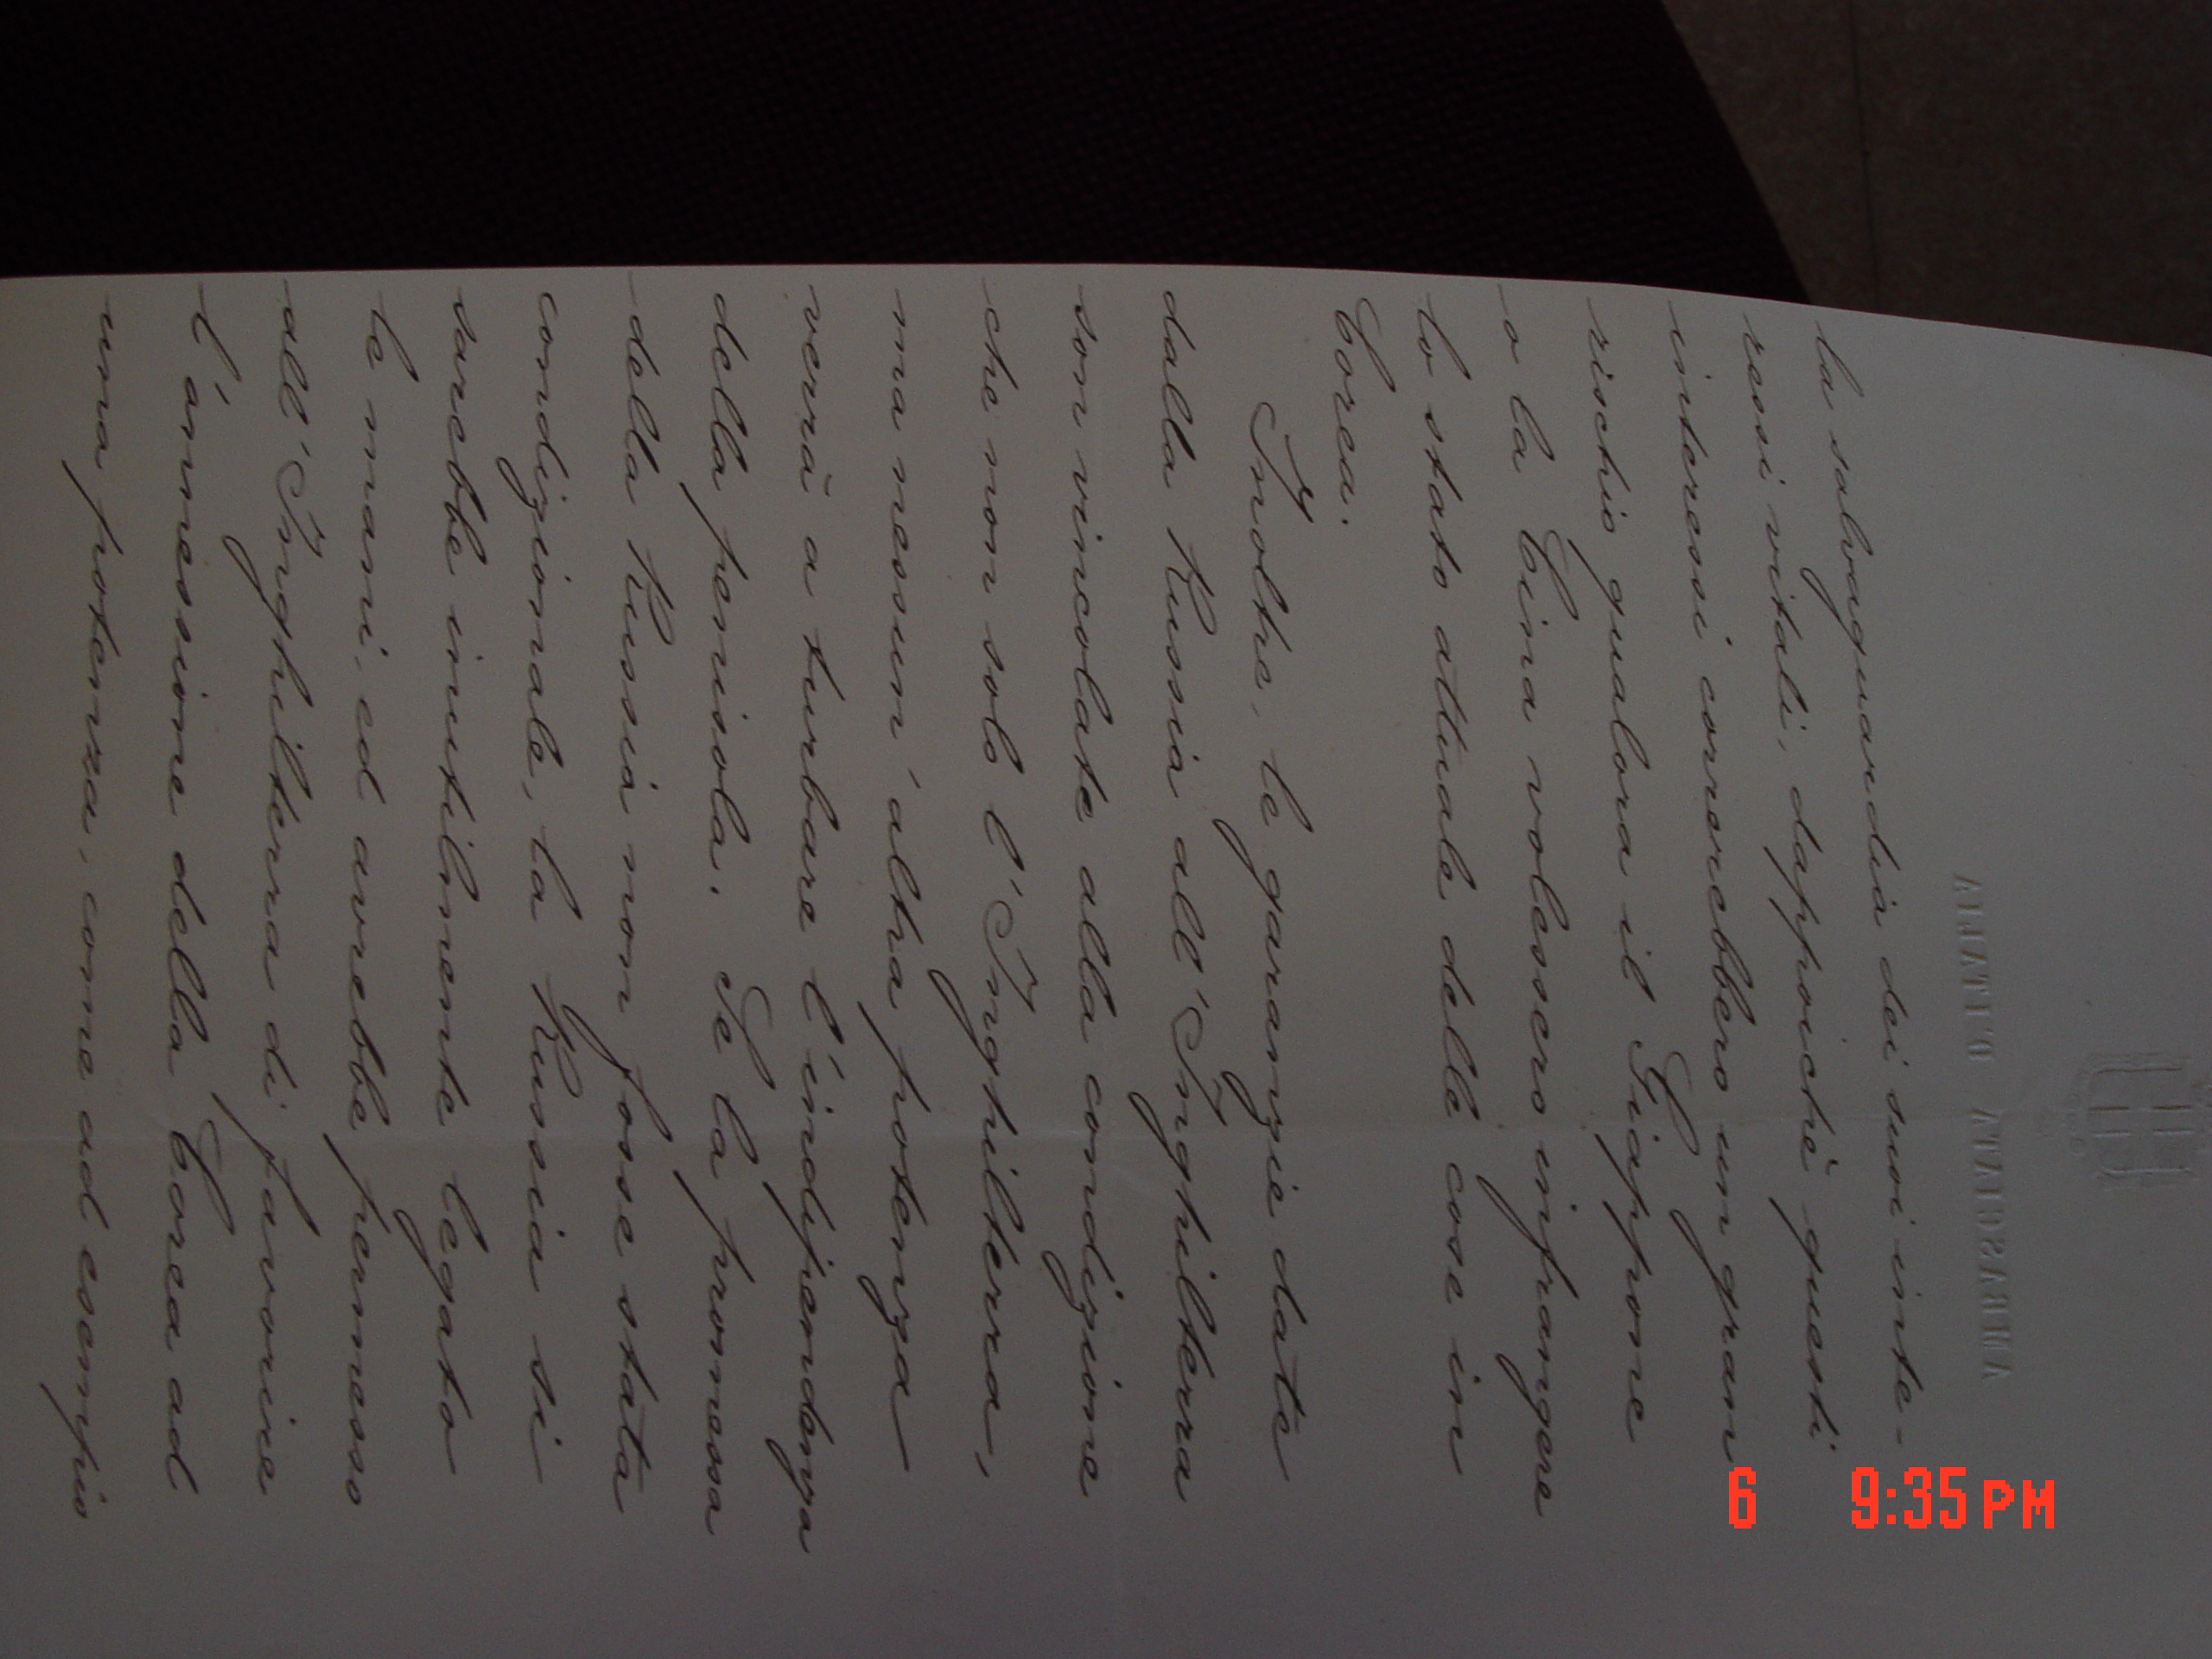 AMBASCIATA D'ITALIA
la salvaguardia dei suoi inte-
ressi vitali, dappoichè questi
interessi correrebbero un gran
rischio qualora il Giappone
o la Cina volessero infrangere
lo stato attuale delle cose in
Corea.
Inoltre, le garanzie date
dalla Russia all'Inghilterra
son vincolate alla condizione
che non solo l'Inghilterra,
ma nessun'altra potenza
verrà a turbare l'indipendenza
della penisola. Se la promessa
della Russia non fosse stata
condizionale, la Russia si
sarebbe inutilmente legato
le mani, ed avrebbe permesso
all'Inghilterra di favorire
l'annessione della Corea ad
una potenza, come ad esempio
6 9:35 PM